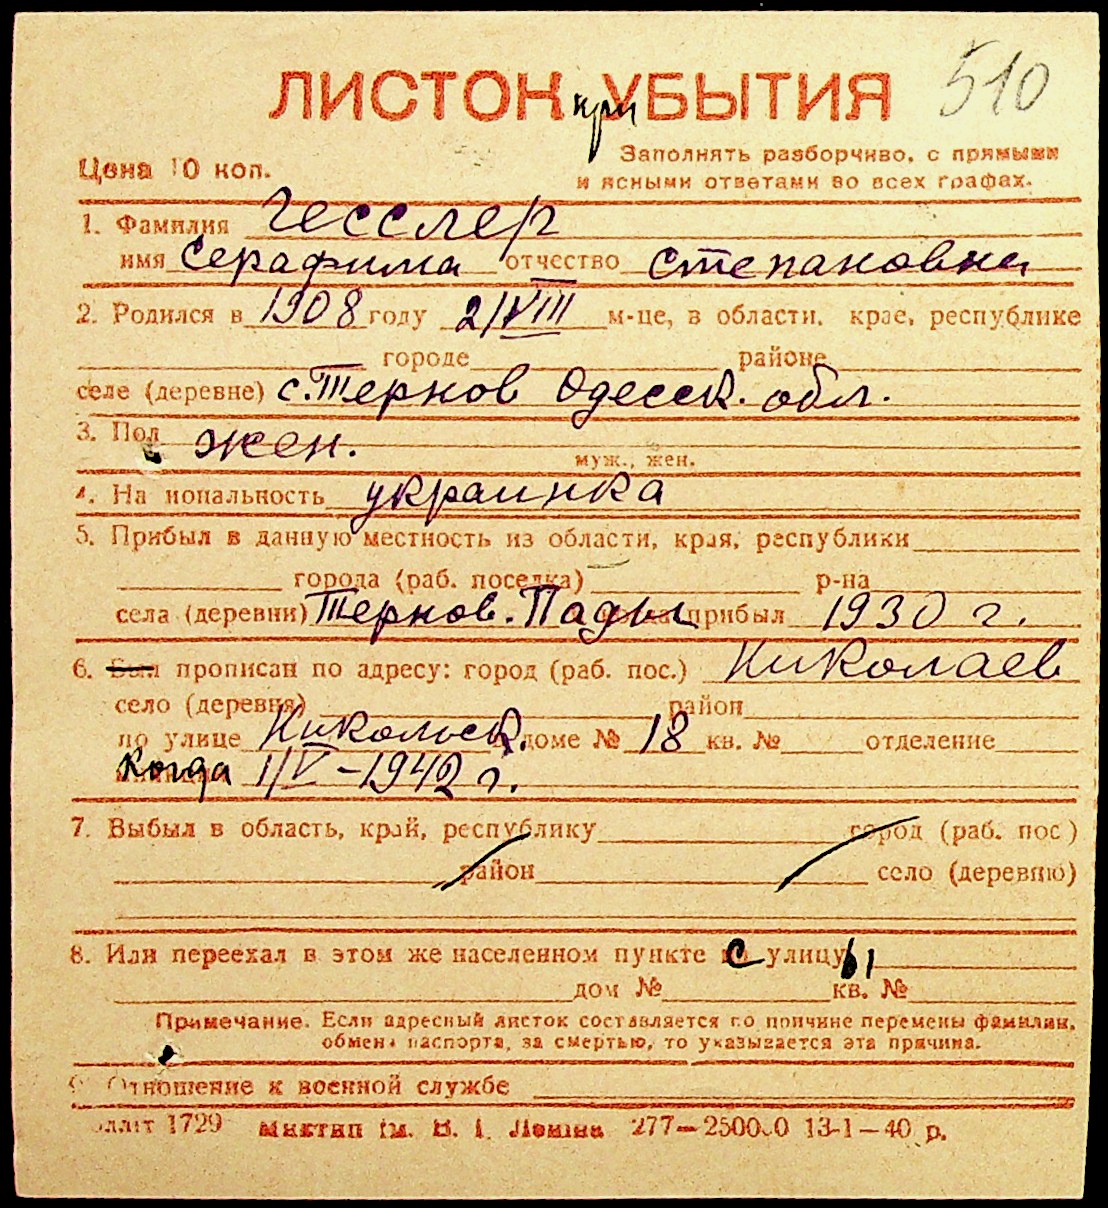 510
ЛИСТОК при УБЫТИЯ
Цена 10 коп.
Заполнять разборчиво, с прямыми
и ясными ответами во всех графах.
1. Фамилия Гесслер
имя Серафима отчество Степановна
2. Родился в 1908 году 2/VIII м-це, в области, крае, республике
городе районе
селе (деревне) с. Тернов Одесск. обл.
3. Пол жен.
муж., жен.
4. Национальность украинка
5. Прибыл в данную местность из области, края, республики
города (раб. поселка) р-на
села (деревни) Тернов. Поды прибыл 1930 г.
6. Был прописан по адресу: город (раб. пос.) Николаев
село (деревня) район
по улице Никольск. доме № 18 кв. № отделение
Когда 1/V-1942 г.
7. Выбыл в область, край, республику город (раб. пос)
район село (деревню)
8. Или переехал в этом же населенном пункте с улицы
дом № кв. №
Примечание. Если адресный листок составляется по причине перемены фамилии,
обмена паспорта, за смертью, то указывается эта причина.
9. Отношение к военной службе
1729 Миктип им. В. И. Ленина 277—250000 13-1—40 р.